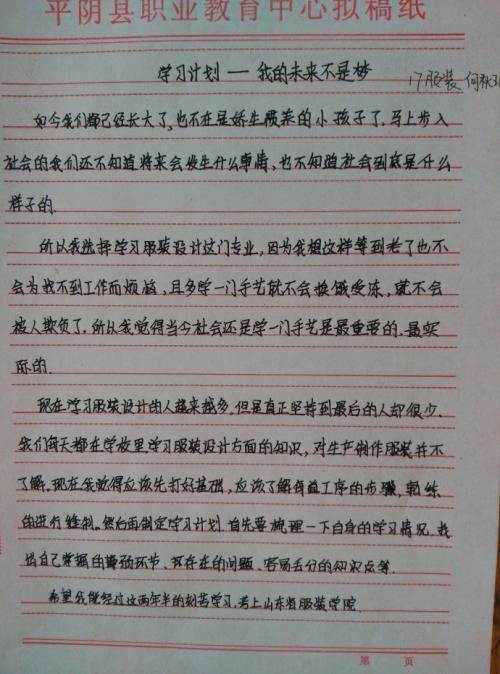 平阴县职业教育中心拟稿纸
学习计划 — 我的未来不是梦
17服装 何秋
如今我们都已经长大了,也不在是娇生惯养的小孩子了.马上步入
社会的我们还不知道将来会发生什么事情,也不知道社会到底是什么
样子的.
所以我选择学习服装设计这门专业,因为我想这样等到老了也不
会为找不到工作而烦恼,且多学一门手艺就不会挨饿受冻,就不会
被人欺负了.所以我觉得当今社会还是学一门手艺是最重要的.最实
际的.
现在学习服装设计的人越来越多.但是真正坚持到最后的人却很少.
我们每天都在学校里学习服装设计方面的知识,对生产制作服装并不
了解.现在我觉得应该先打好基础,应该了解缝益工序的步骤,熟练
的进行缝制.然后再制定学习计划.首先要梳理一下自身的学习情况.找
出自己掌握的薄弱环节、存在的问题、容易丢分的知识点等.
希望我能经过这两年半的刻苦学习,考上山东省服装学院.
第 页